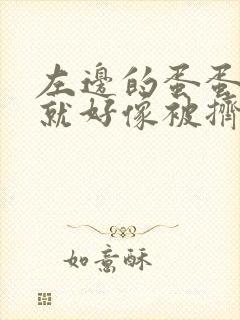 左邊的蛋蛋
就好像被擠
如意酥